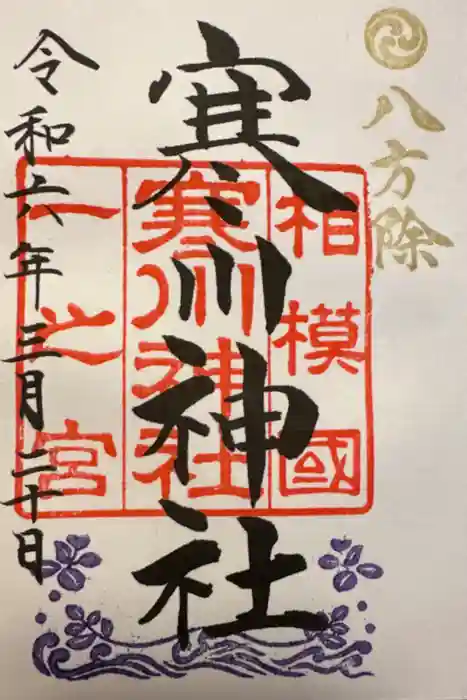 八方除
相模國
寒川神社
一之宮
寒川神社
令和六年三月二十日